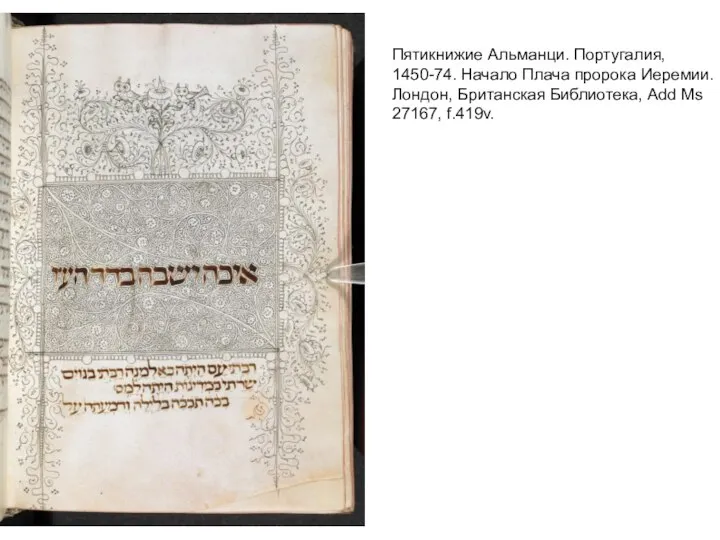 Пятикнижие Альманци. Португалия,
1450-74. Начало Плача пророка Иеремии.
Лондон, Британская Библиотека, Add Ms
27167, f.419v.
איכה ישבה בדד העי
רבתי עם היתה כאלמנה רבתי בגוים
שרתי במדינות היתה למס
בכה תבכה בלילה ודמעתה על